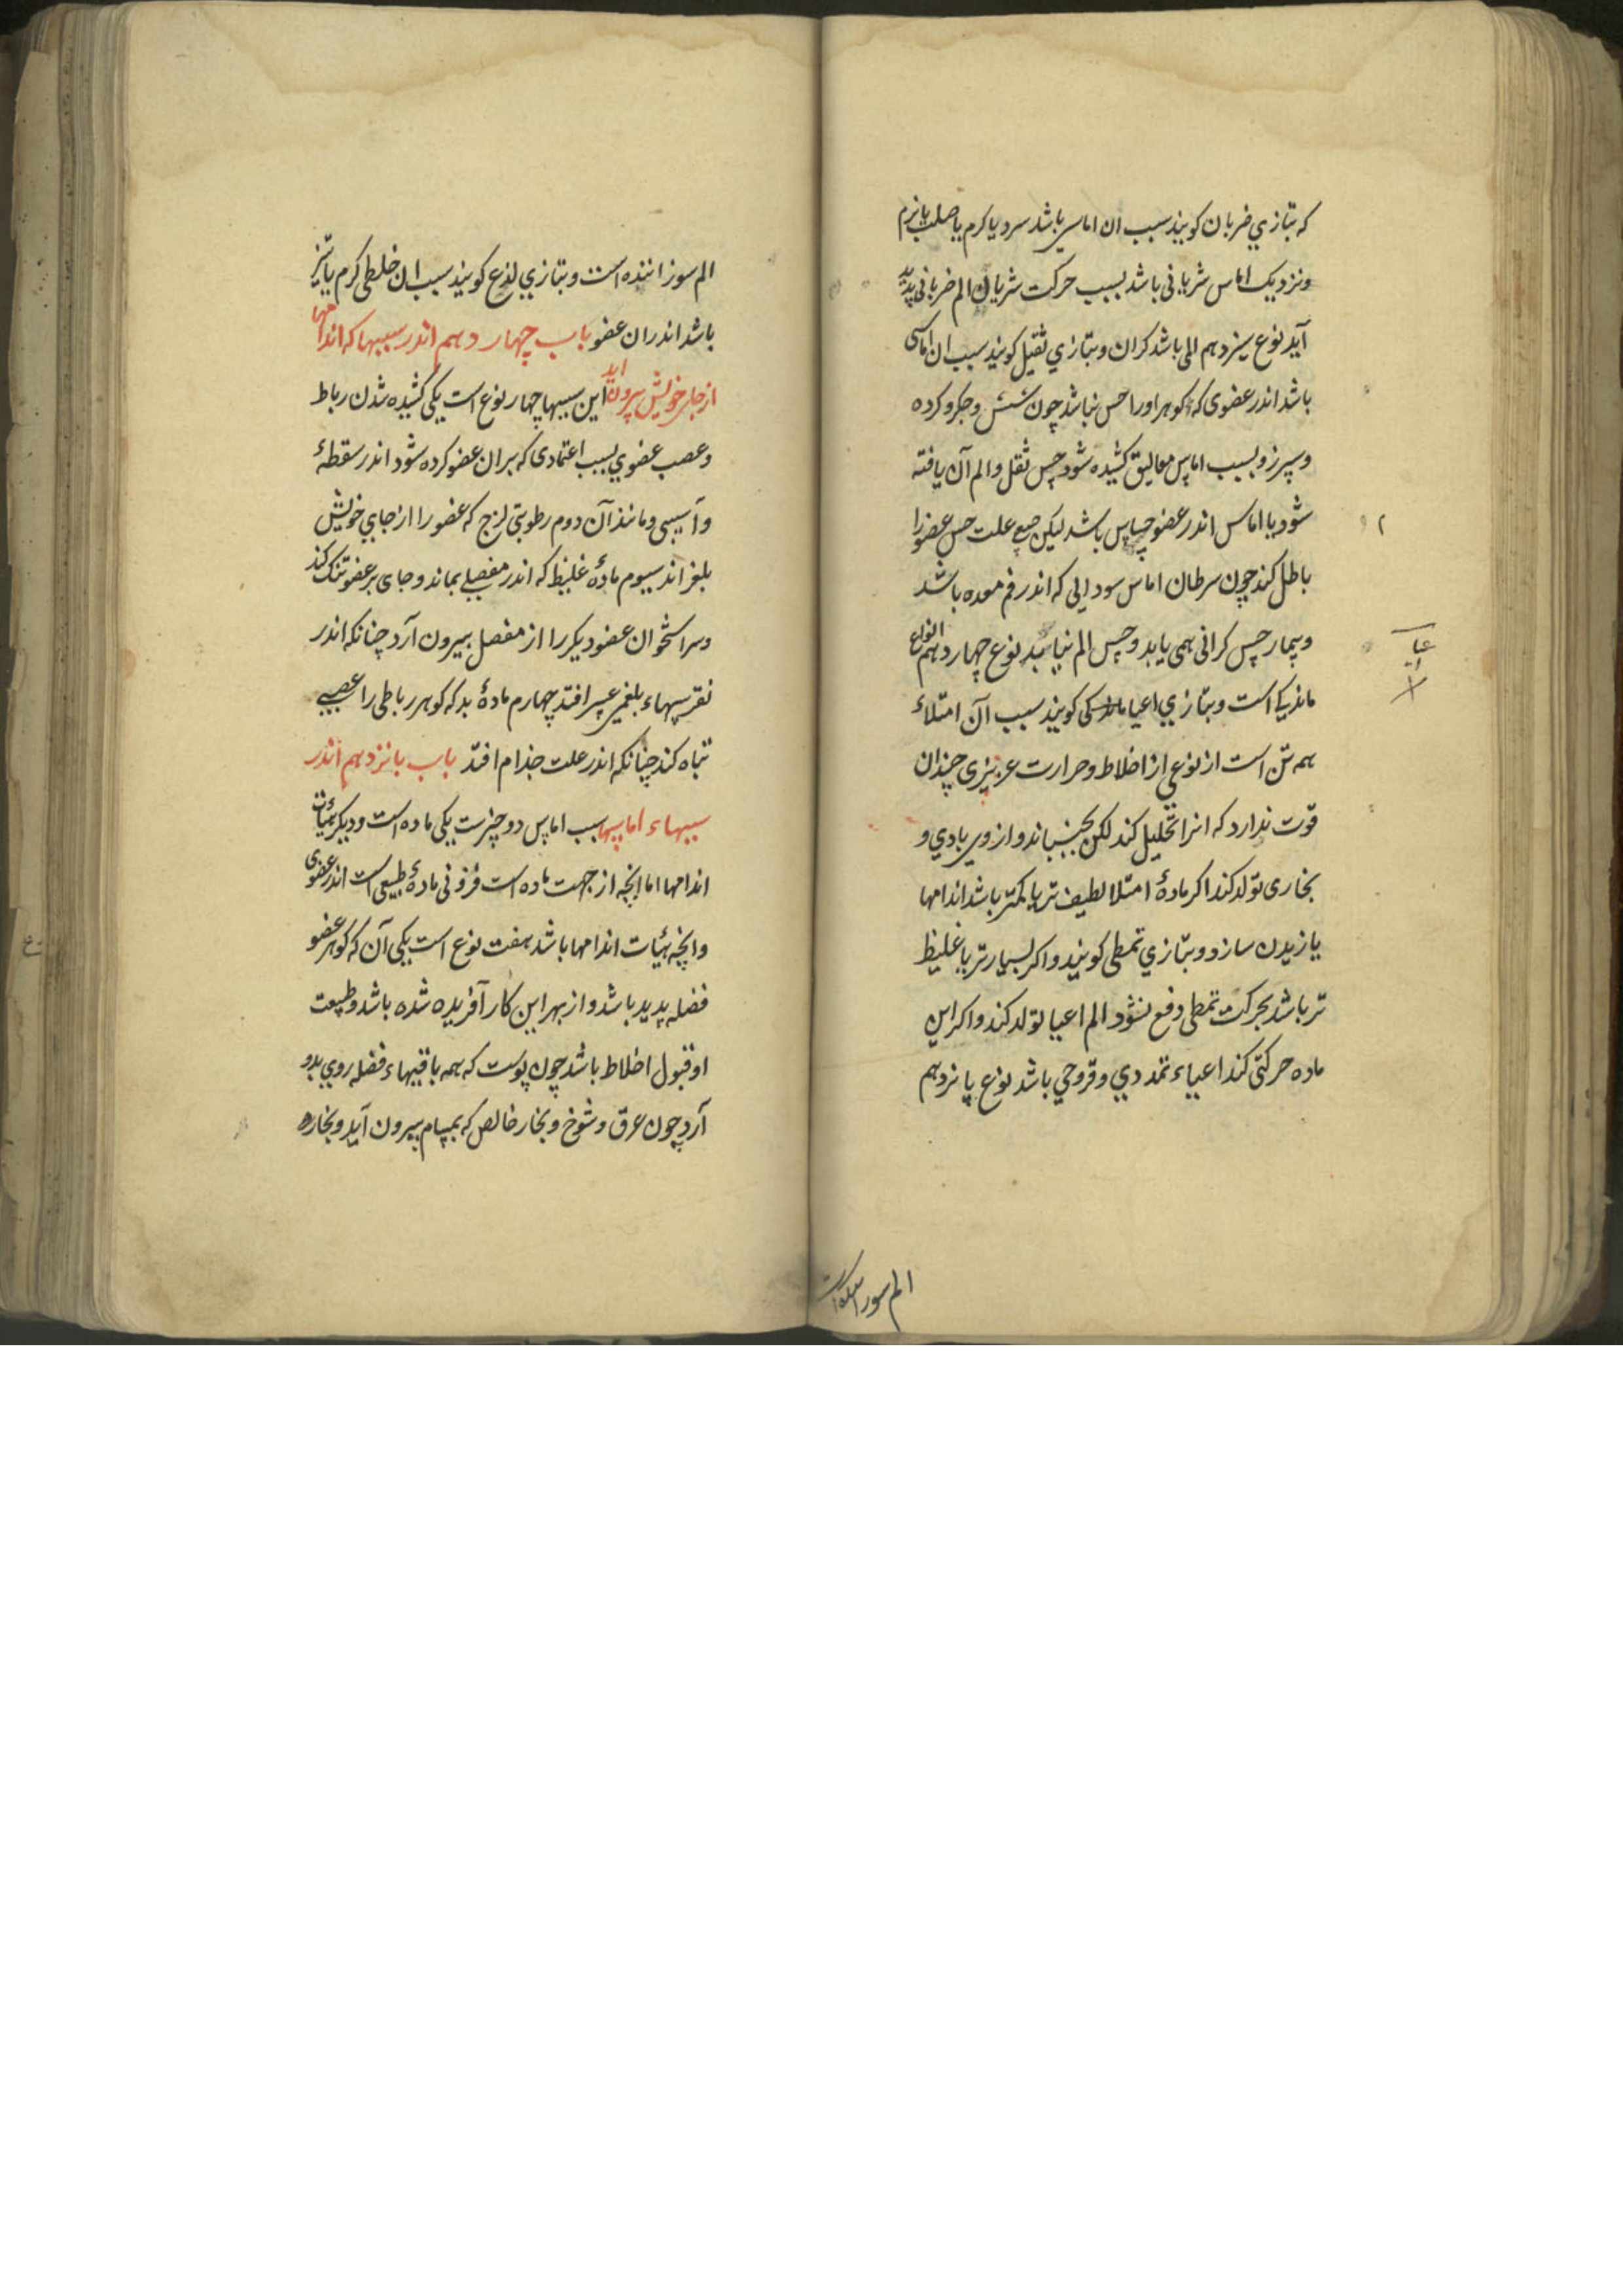 که بتازي ضربان کویند سبب ان اماسی باشد سرد یا کرم یا صلب یا نرم
ونزدیک اماس شریانی باشد بسبب حرکت شریان الم ضربانی پدید
آید نوع سیزدهم المی باشد کران وبتازي ثقیل کویند سبب ان اماسی
باشد اندر عضوی که کوهر اورا حس نباشد چون شش وجکر وکرده
وسپرز وبسبب اماس معالیق کشیده شود حس ثقل والم آن یافته
شود یا اماس اندر عضو حساس باشد لیکن علت حس عضورا
باطل کند چون سرطان اماس سودایی که اندر فم معده باشد
وبیمار حس کرانی همی یابد وحس الم نیابد نوع چهاردهم انواع
ماندیکی است وبتازي اعیا کویند سبب آن امتلاء
همه تن است از نوعی از اخلاط وحرارت عریزی چندان
قوت ندارد که انرا تحلیل کند لکن بجنباند واز وی بادي و
بخاری تولد کند اکر مادهٔ امتلا لطیف تر یا کمتر باشد اندامها
یازیدن سازد وبتازي تمطی کویند واکر بسیارتر یا غلیظ
تر باشد بحرکت تمطی دفع نشود الم اعیا تولد کند واکر این
ماده حرکتی کند اعیاء تمددي وقروحي باشد نوع پانزدهم
الم سوزاننده است
الم سوزاننده است وبتازي لذع کویند سبب ان خلطی کرم یا تیز
باشد اندران عضو باب چهاردهم اندر سببها که اندامها
از جای خویش بیرون آید این سببها چهار نوع است یکی کشیده شدن رباط
وعصب عضوي بسبب اعتمادی که بران عضو کرده شود اندر سقطهٔ
وآسیبی ومانند آن دوم رطوبتی لزج که عضو را از جاي خویش
بلغزاند سیوم مادهٔ غلیظ که اندر مفصلی بماند وجای بر عضو تنک کند
وسر استخوان عضو دیکر را از مفصل بیرون آرد چنانکه اندر
نقرسهاء بلغمی افتد چهارم مادهٔ بد که کوهر رباطی را عصبی
تباه کند چنانکه اندر علت جذام افتد باب پانزدهم اندر
سببهاء اماسها سبب اماس دو چیزست یکی ماده است ودیکر هیأت
اندامها اما انچه از جهت ماده است فزونی مادهٔ طبیعی است اندر عضوی
وانچه هیئات اندامها باشد هفت نوع است یکی آن که کوهر عضو
فضله پدید باشد واز بهر این کار آفریده شده باشد وطبیعت
او قبول اخلاط باشد چون پوست که همه باقیهاء فضله روي بدو
آرد چون عرق وشوخ وبخار خالص که بمسام بیرون آید وبخاره